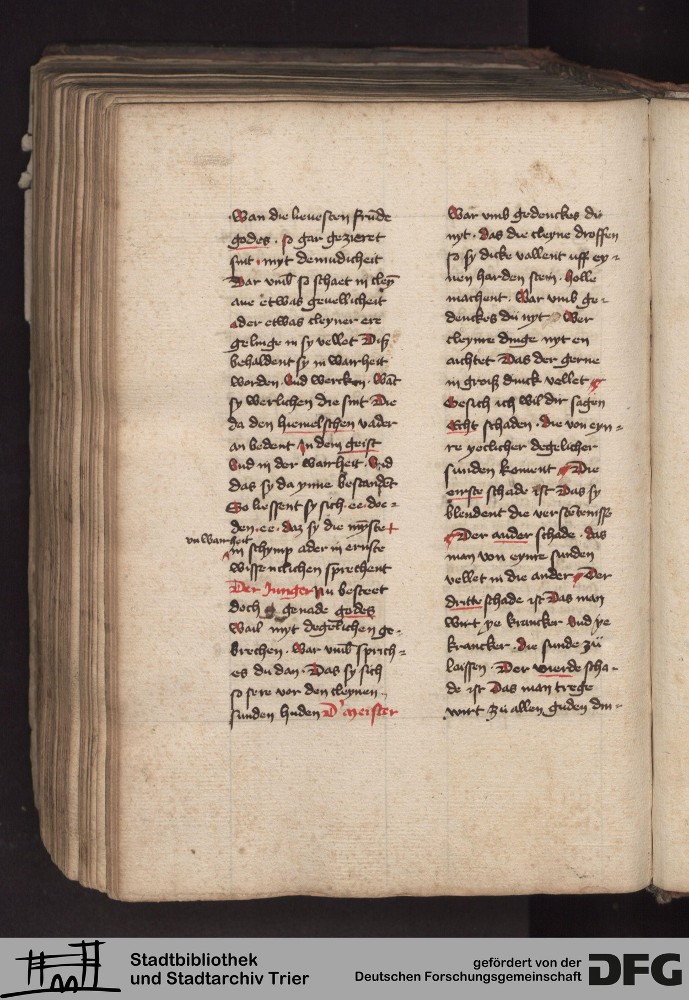 Wan die lieuesten frūde
godes . so gar gezieret
sint . myt demudicheit
Dar vmb so schaet in cleȳ
aue etwas geuellicheit
ader etwas cleyner ere
gelinge in sy vellet Diß
behaldent sy in wairheit
worden . Vnd wercken . Wāt
sy werlichen die sint Die
da den hiemelschen vader
an bedent in dem geist
Vnd in der wairheit . Vnd
das sy da ynne bestandēt
So liessent sy sich . ee . doe-
den . ee . daz sy die myste +
vn Wairheit
in schymp ader in ernste
wissenclichen sprechent
Der Junger Nu besteet
doch genade godes
wail myt degelichen ge-
brechen . War vmb sprich-
es du dan . Das sy sich
so sere vor den cleynen
sunden huden D' meister
War vmb gedenckes dü
nyt . das die cleyne droffen
so sy dicke vallent uff ey-
nen harden stein . holle
machent . War vmb ge-
denckes dü nyt Wer
cleyne dinge nyt en
aichtet Das der gerne
in groiß dinck vellet
Gesich ich wil dir sagen
Echt schaden . die von eyn-
re yeclicher degelicher
sunden koment Die
eirste schade ist Das sy
blendent die verstētenisse
Der ander schade . das
man von eyme sunden
vellet in die ander Der
dritte schade ist Das man
wirt ye krancker Vnd ye
krancker . die sunde zü
laissen . Der vierde scha-
de ist Das man trege
wirt zü allen guden din-
Stadtbibliothek
und Stadtarchiv Trier
gefördert von der
Deutschen Forschungsgemeinschaft
DFG